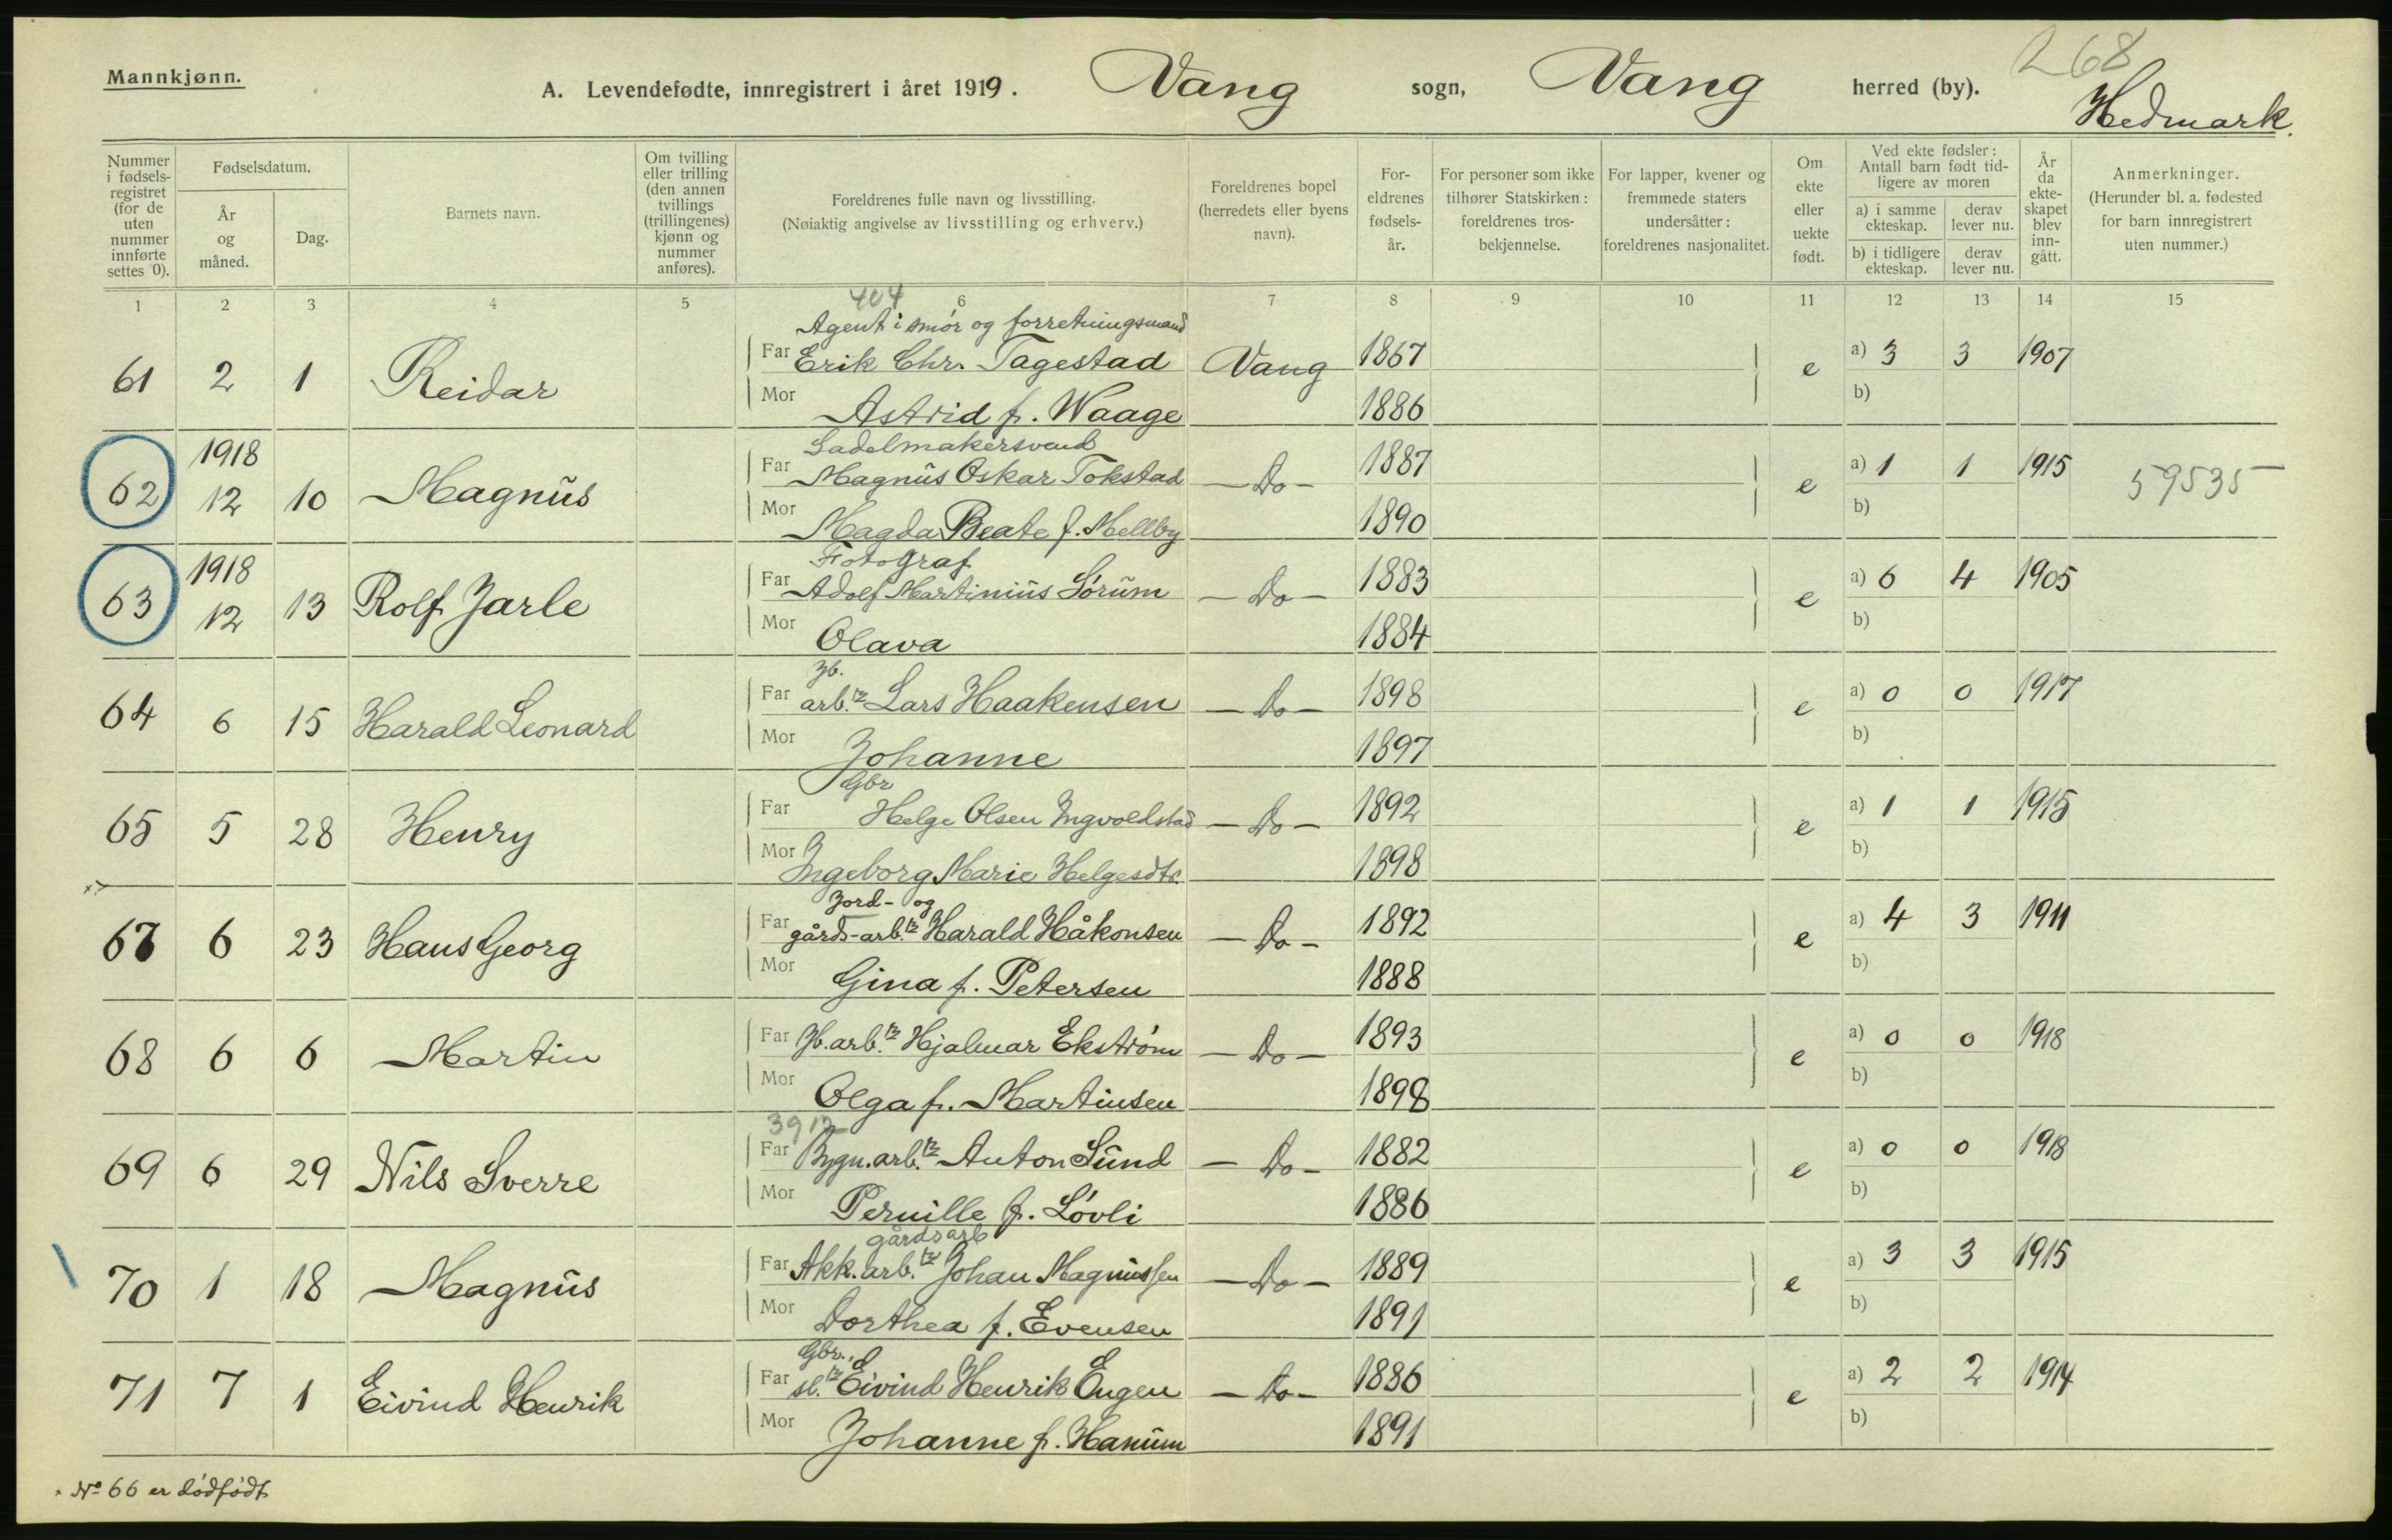 Mannkjønn.
A. Levendefødte, innregistrert i året 1919. Vang sogn, Vang herred (by).
268
Hedmark.
Nummer i fødsels-registret (for de uten nummer innførte settes 0).
Fødselsdatum.
År og måned.
Dag.
Barnets navn.
Om tvilling eller trilling (den annen tvillings (trillingenes) kjønn og nummer anføres).
Foreldrenes fulle navn og livsstilling.
(Nøiaktig angivelse av livsstilling og erhverv.)
Foreldrenes bopel (herredets eller byens navn).
For-eldrenes fødsels-år.
For personer som ikke tilhører Statskirken: foreldrenes tros-bekjennelse.
For lapper, kvener og fremmede staters undersåtter: foreldrenes nasjonalitet.
Om ekte eller uekte født.
Ved ekte fødsler: Antall barn født tid-ligere av moren
a) i samme ekteskap.
derav lever nu.
b) i tidligere ekteskap.
derav lever nu.
År da ekte-skapet blev inn-gått.
Anmerkninger.
(Herunder bl. a. fødested for barn innregistrert uten nummer.)
1 2 3 4 5 6 7 8 9 10 11 12 13 14 15
404
Agent i smör og forretningsmand
61 2 1 Reidar Far Erik Chr. Tagestad Vang 1867 e a) 3 3 1907
Mor Astrid f. Waage 1886 b)
Sadelmakersvend
62 1918 12 10 Magnus Far Magnus Oskar Tokstad — Do — 1887 e a) 1 1 1915 59535
Mor Magda Beate f. Mellby 1890 b)
Fotograf
63 1918 12 13 Rolf Jarle Far Adolf Martinius Sörum — Do — 1883 e a) 6 4 1905
Mor Olava 1884 b)
Jb.
64 6 15 Harald Leonard Far arb.r Lars Haakensen — Do — 1898 e a) 0 0 1917
Mor Johanne 1897 b)
Gbr
65 5 28 Henry Far Helge Olsen Ingvoldstad — Do — 1892 e a) 1 1 1915
Mor Ingeborg Marie Helgesdtr. 1898 b)
Jord- og
67 6 23 Hans Georg Far gårds-arb.r Harald Håkonsen — Do — 1892 e a) 4 3 1911
Mor Gina f. Petersen 1888 b)
68 6 6 Martin Far Jb. arb.r Hjalmar Ekström — Do — 1893 e a) 0 0 1918
Mor Olga f. Martinsen 1898 b)
3912
69 6 29 Nils Sverre Far Bygn. arb.r Anton Sund — Do — 1882 e a) 0 0 1918
Mor Pernille f. Lövli 1886 b)
gårdsarb
70 1 18 Magnus Far Akk. arb.r Johan Magnussen — Do — 1889 e a) 3 3 1915
Mor Dorthea f. Evensen 1891 b)
Gbr.,
71 7 1 Eivind Henrik Far sl.r Eivind Henrik Engen — Do — 1886 e a) 2 2 1914
Mor Johanne f. Hanum 1891 b)
× No 66 er dödfödt